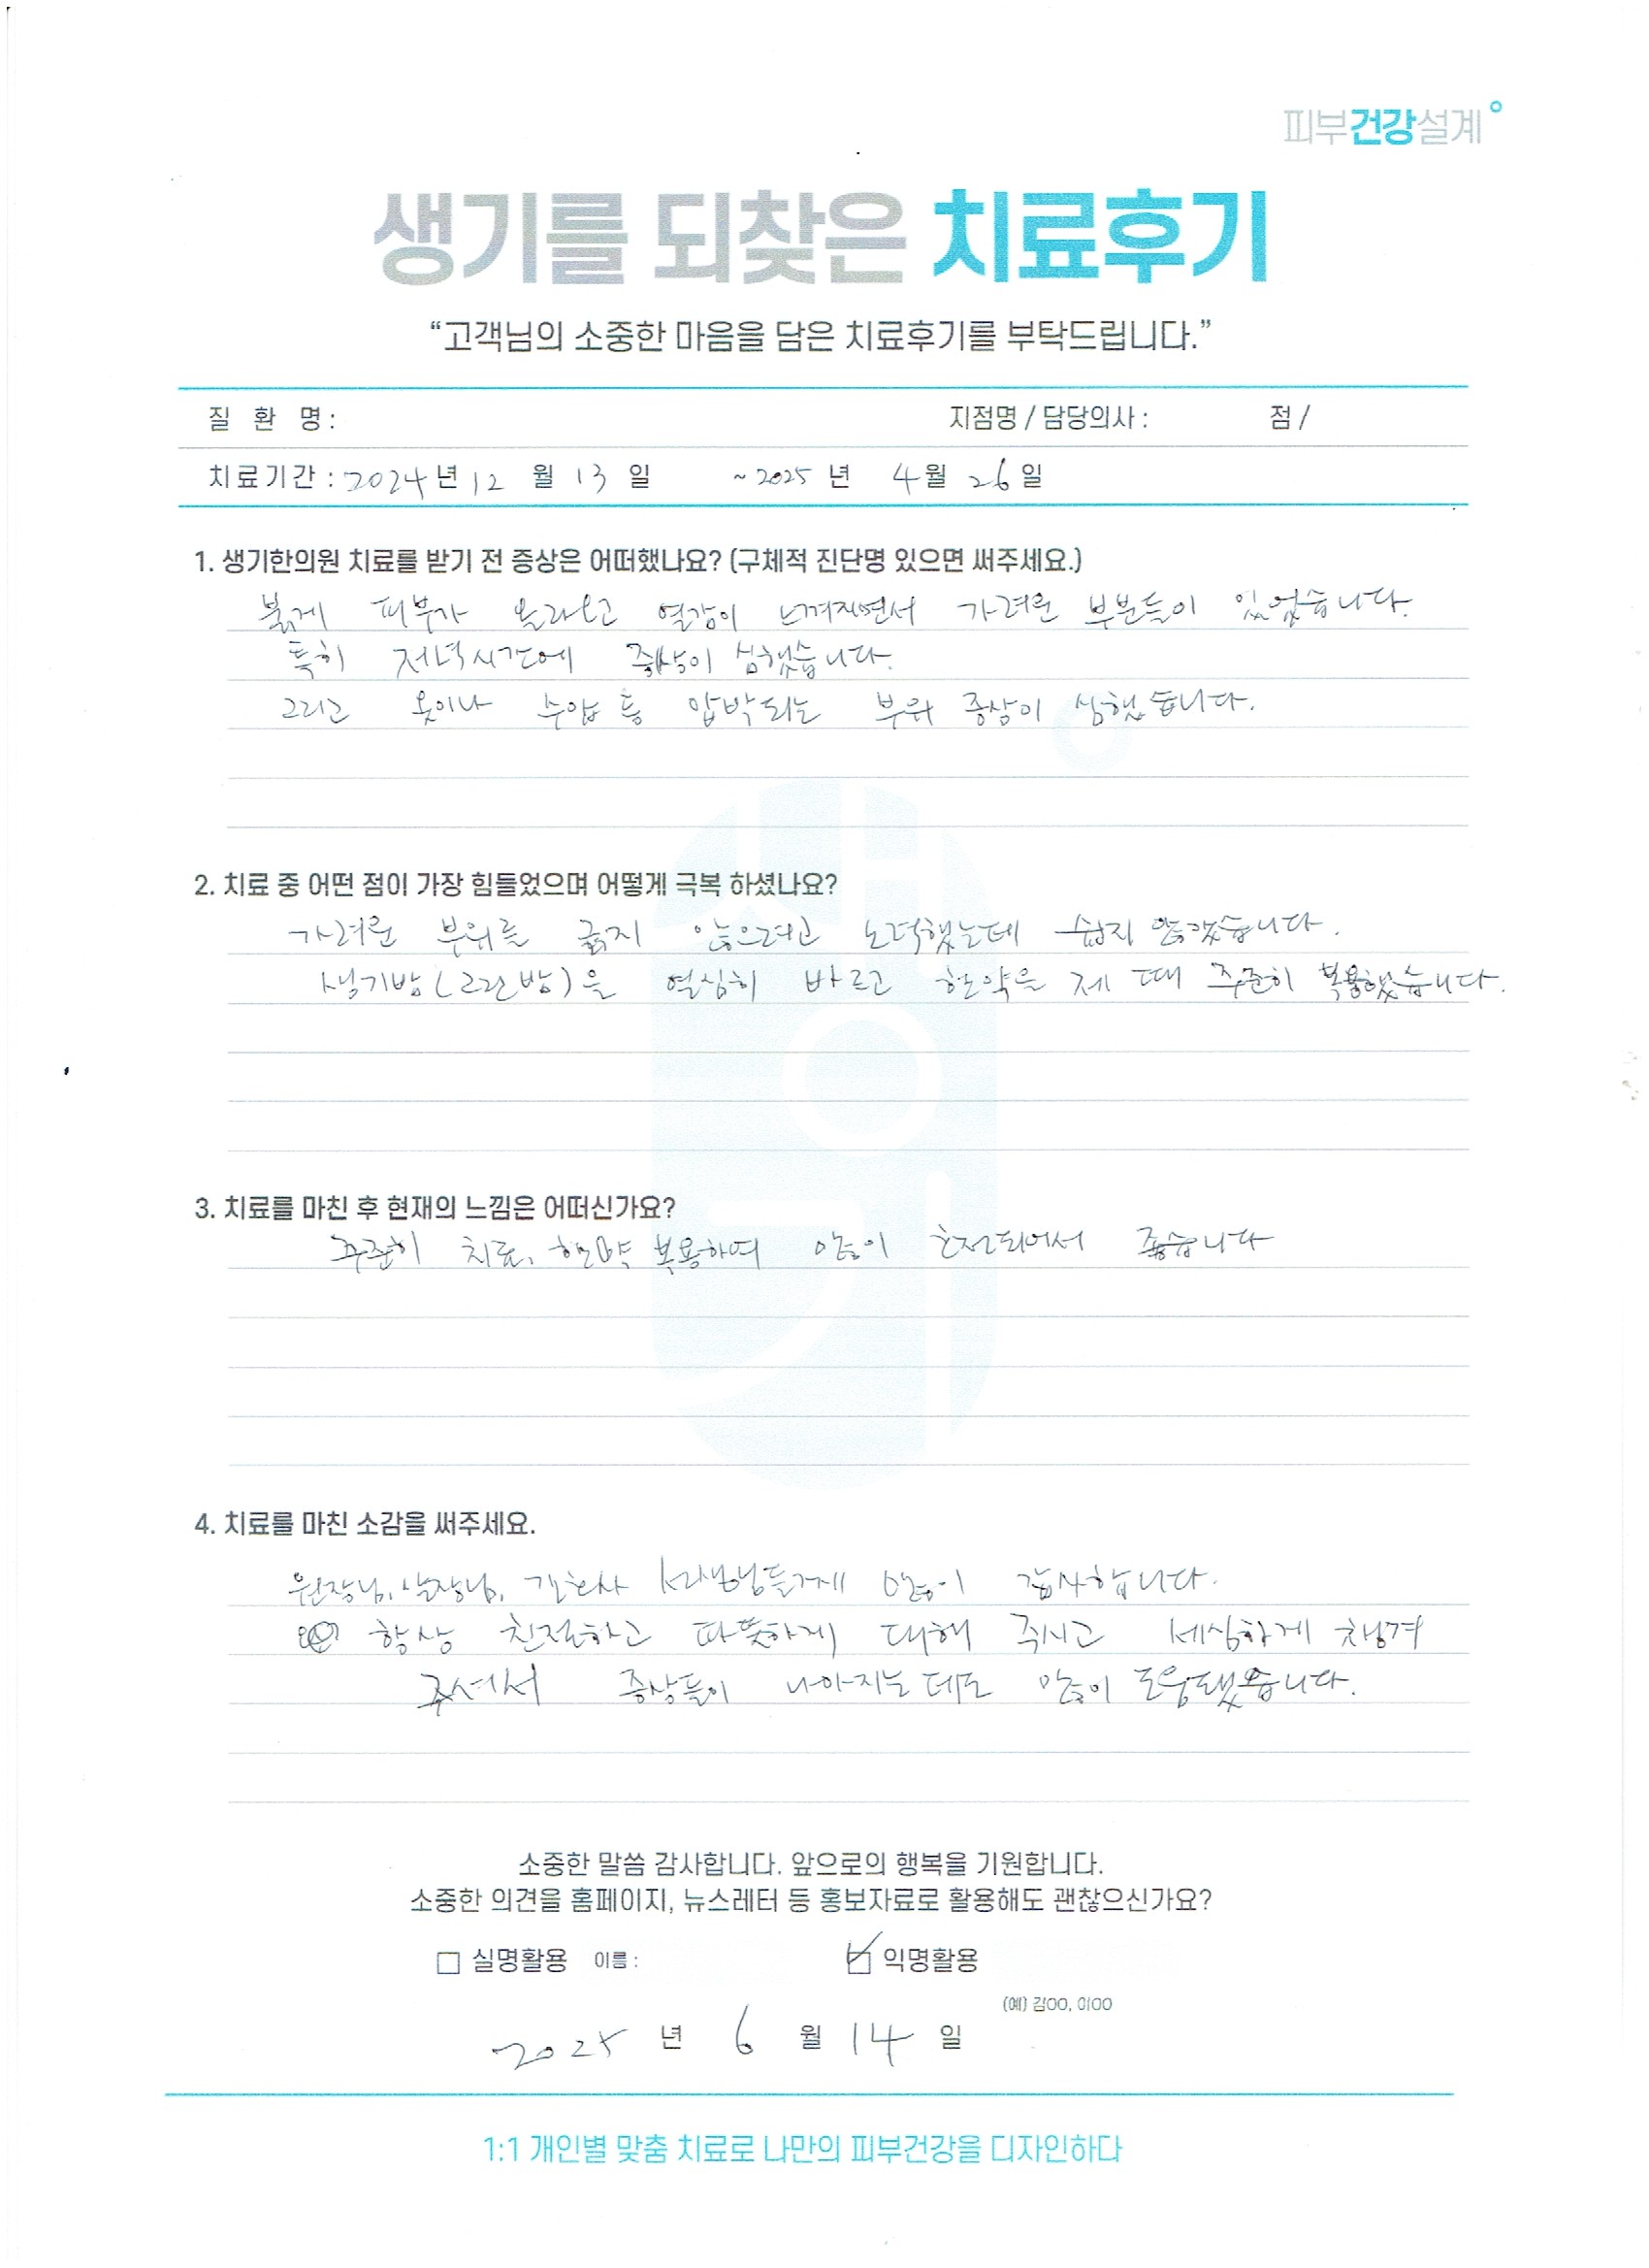 피부건강설계
생기를 되찾은 치료후기
“고객님의 소중한 마음을 담은 치료후기를 부탁드립니다.”
질 환 명 : 지점명 / 담당의사 : 점 /
치료기간 : 2024년 12 월 13 일 ~ 2025 년 4월 26일
1. 생기한의원 치료를 받기 전 증상은 어떠했나요? (구체적 진단명 있으면 써주세요.)
붉게 피부가 올라오고 열감이 느껴지면서 가려운 부분들이 있었습니다.
특히 저녁시간에 증상이 심했습니다.
그리고 옷이나 수압 등 압박되는 부위 증상이 심했습니다.
2. 치료 중 어떤 점이 가장 힘들었으며 어떻게 극복 하셨나요?
가려운 부위를 긁지 않으려고 노력했는데 쉽지 않았습니다.
생기밤(그린밤)을 열심히 바르고 한약을 제 때 꾸준히 복용했습니다.
3. 치료를 마친 후 현재의 느낌은 어떠신가요?
꾸준히 치료, 한약 복용하며 많이 호전되어서 좋습니다
4. 치료를 마친 소감을 써주세요.
원장님, 실장님, 간호사 선생님들께 많이 감사합니다.
항상 친절하고 따뜻하게 대해 주시고 세심하게 챙겨
주셔서 증상들이 나아지는데도 많이 도움됐습니다.
소중한 말씀 감사합니다. 앞으로의 행복을 기원합니다.
소중한 의견을 홈페이지, 뉴스레터 등 홍보자료로 활용해도 괜찮으신가요?
실명활용 이름 : 익명활용
(예) 김OO, 이OO
2025 년 6 월 14 일
1:1 개인별 맞춤 치료로 나만의 피부건강을 디자인하다